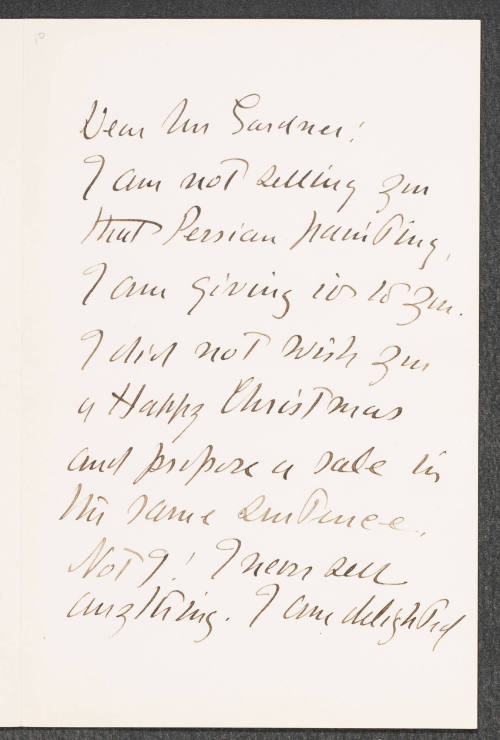 Dear Mrs Gardner!
I am not selling you
that Persian painting,
I am giving it to you.
I did not wish you
a Happy Christmas
and propose a sale in
the same sentence.
Not I! I never sell
anything. I am delighted